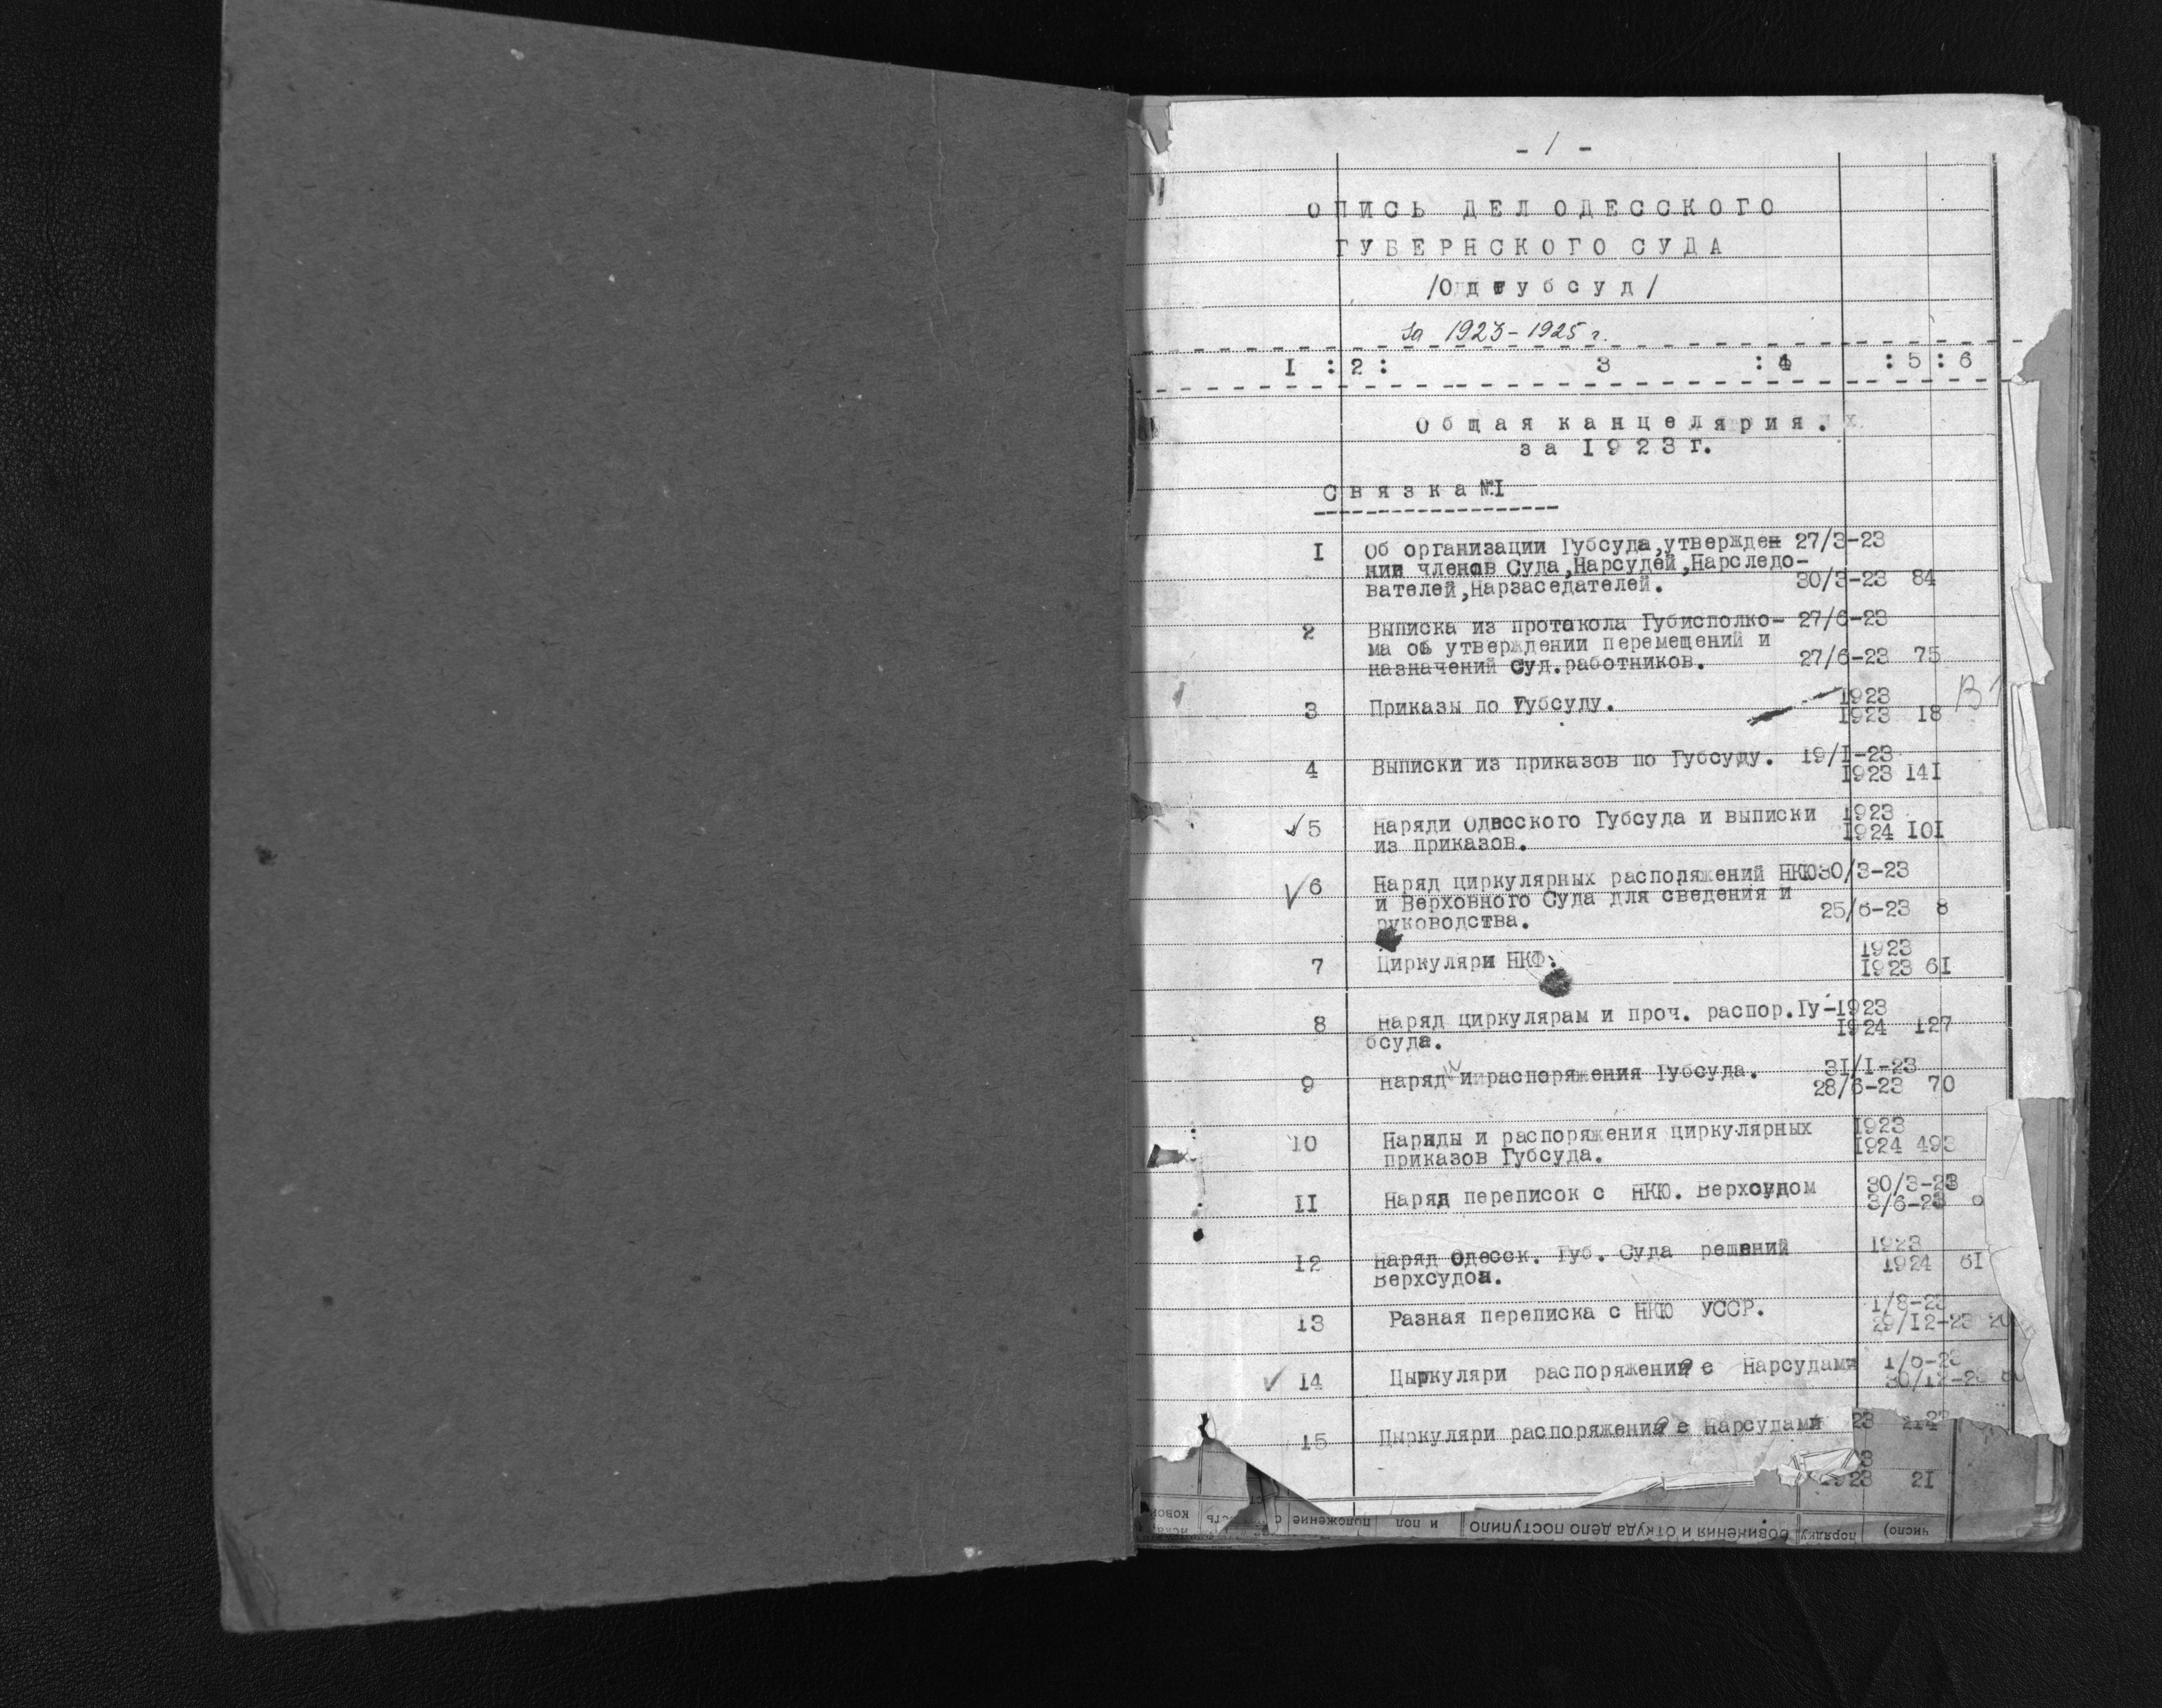 - 1 -
ОПИСЬ ДЕЛ ОДЕССКОГО
ГУБЕРНСКОГО СУДА
/Одгубсуд/
за 1923-1925 г.
I : 2 : 3 : 4 : 5 : 6
Общая канцелярия.
за 1923 г.
Связка №I
I Об организации Губсуда,утвержден 27/3-23
нии членов Суда,Нарсудей,Нарследо-
вателей,Нарзаседателей. 30/3-23 84
2 Выписка из протокола Губисполко- 27/6-23
ма об утверждении перемещений и
назначений суд.работников. 27/6-23 75
3 Приказы по Губсуду. 1923
1923 18
4 Выписки из приказов по Губсуду. 19/I-23
1923 141
5 Наряди Одесского Губсуда и выписки 1923
из приказов. 1924 101
6 Наряд циркулярных распоряжений НКЮ 30/3-23
и Верховного Суда для сведения и
руководства. 25/6-23 8
7 Циркуляри НКФ. 1923
1923 61
8 Наряд циркулярам и проч. распор.Гу- 1923
бсуда. 1924 127
9 Наряд и распоряжения Губсуда. 31/I-23
28/6-23 70
10 Наряды и распоряжения циркулярных 1923
приказов Губсуда. 1924 493
II Наряд переписок с НКЮ. Верхсудом 30/3-23
3/6-23
12 Наряд Одесск. Губ. Суда решений 1923
Верхсудом. 1924 61
13 Разная переписка с НКЮ УССР. 1/8-23
29/12-23
14 Цыркуляри распоряжений с Нарсудами 1/6-23
30/12-23
15 Цыркуляри распоряжений с Нарсудами 23
1923 21
число)
порядку
обвинения и откуда дело поступило
и пол
положение